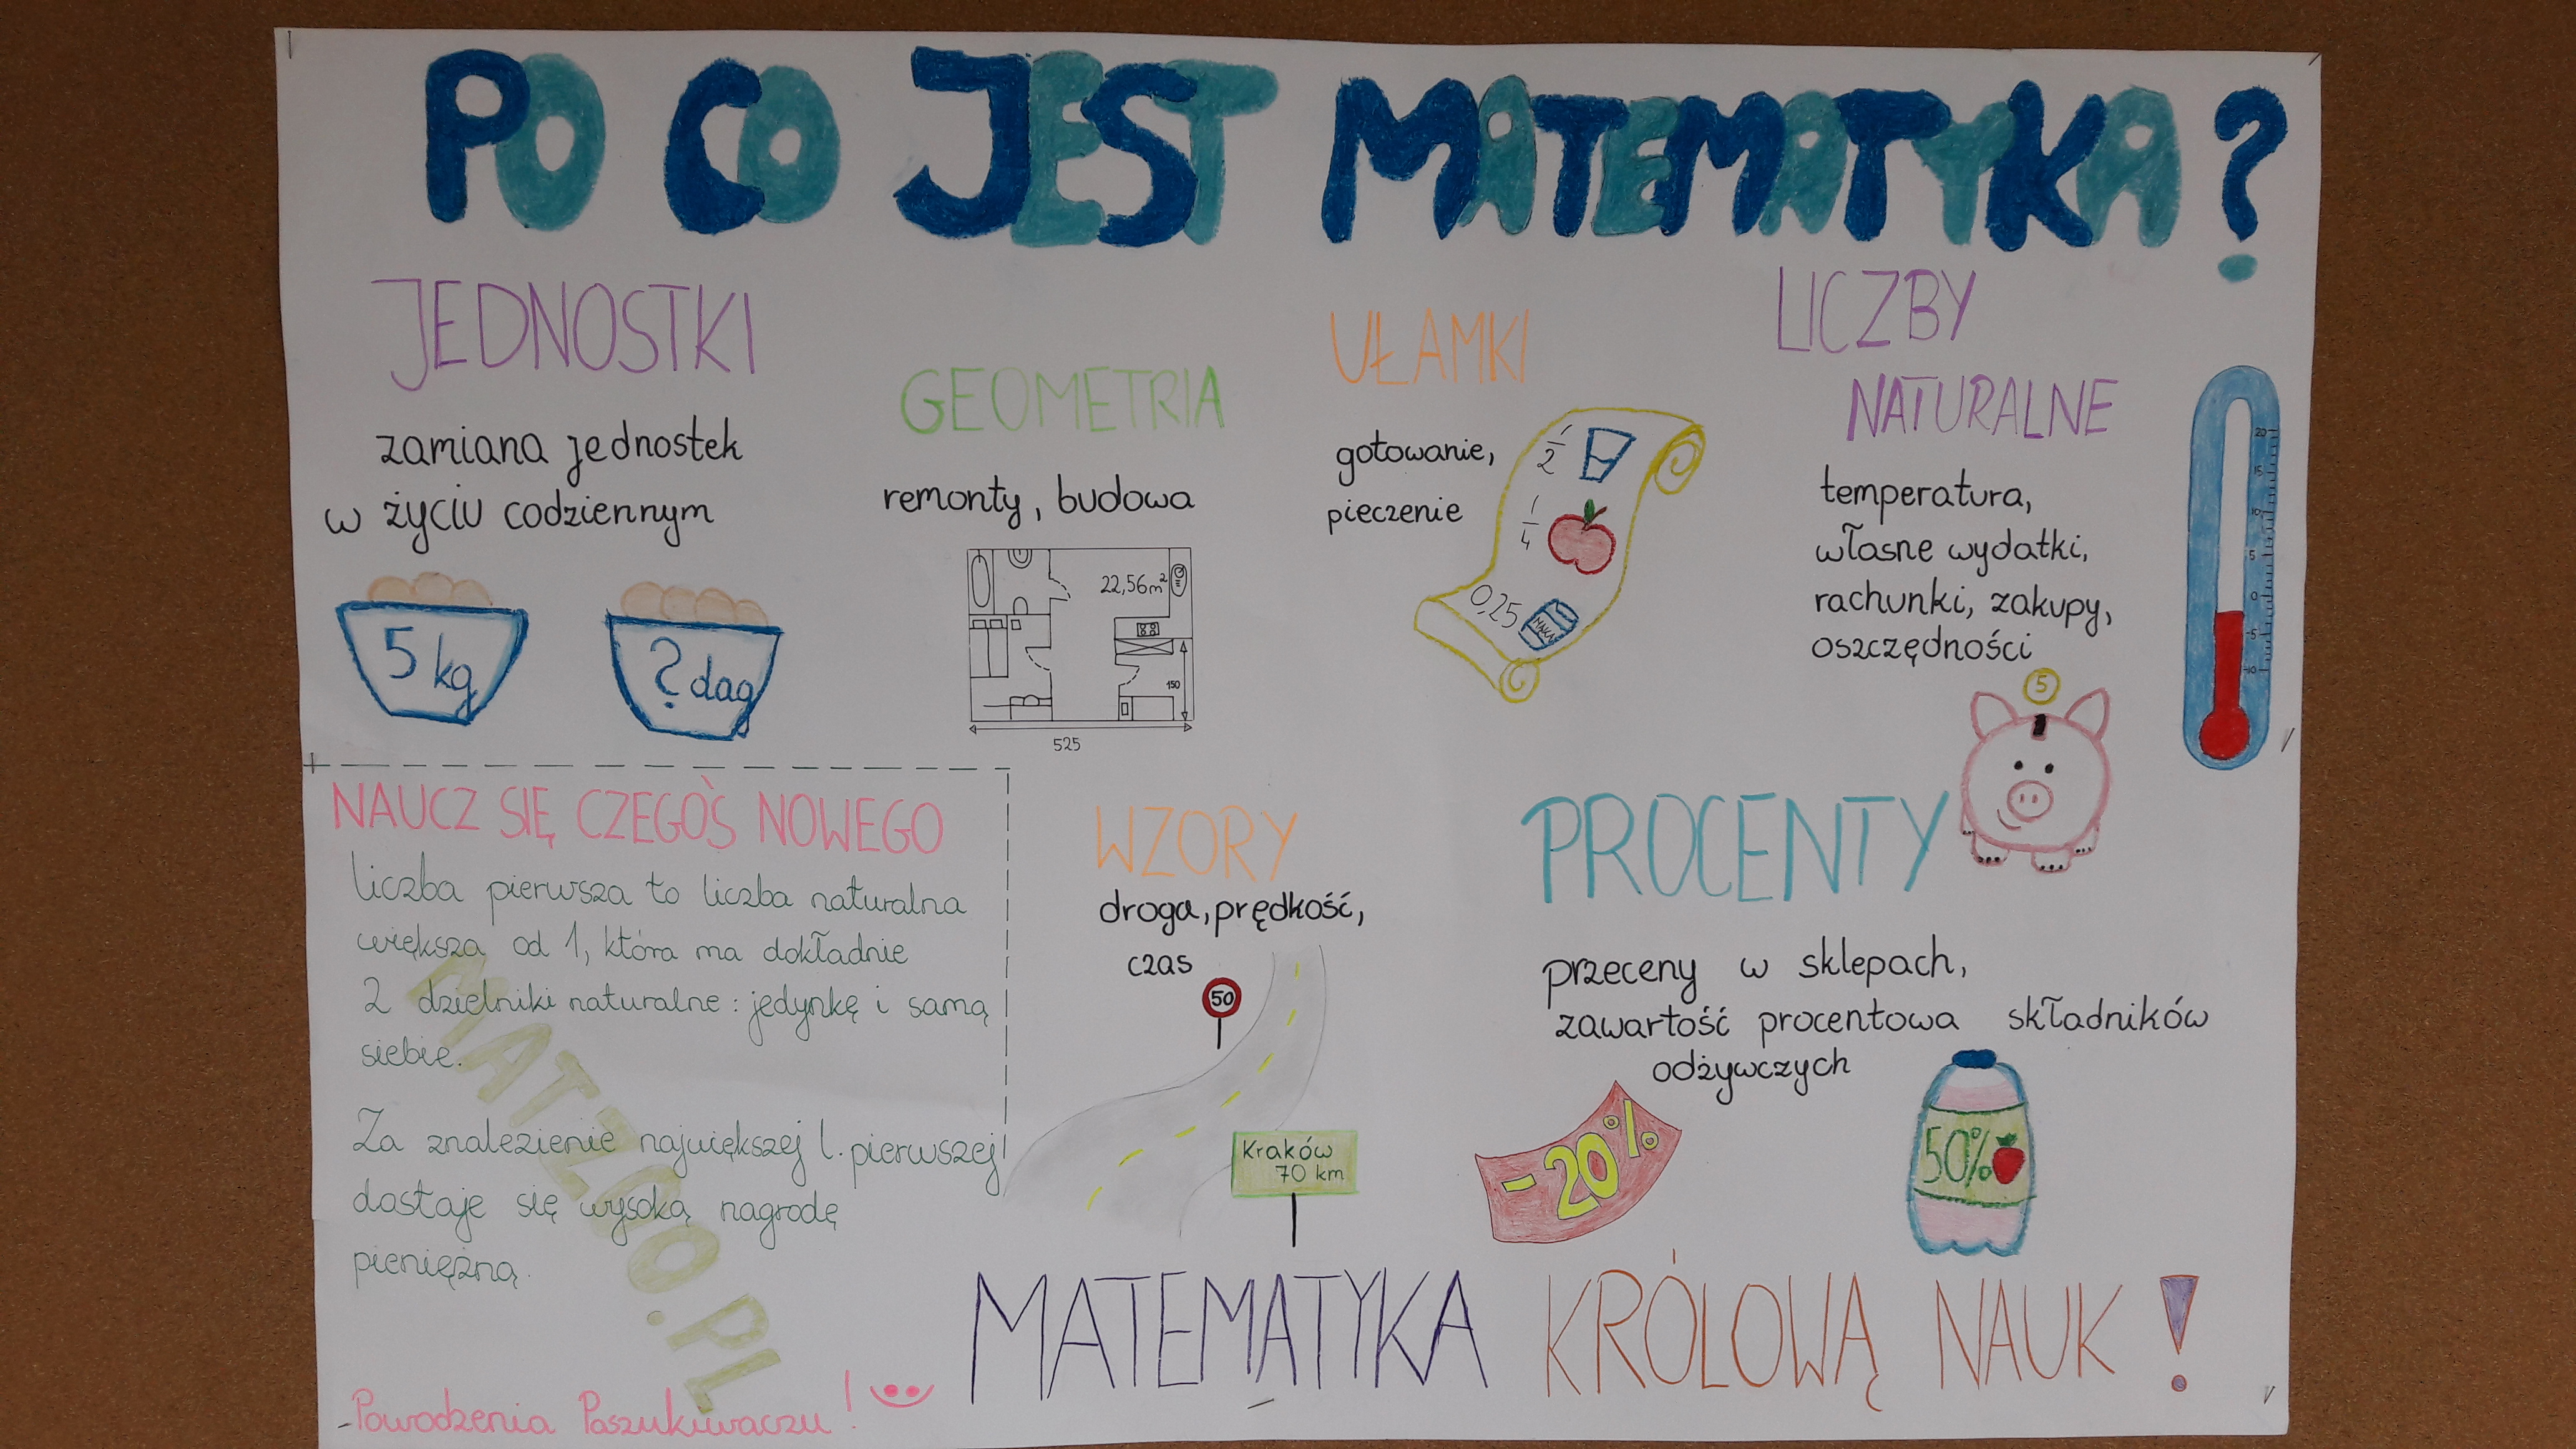 PO CO JEST MATEMATYKA?
JEDNOSTKI
zamiana jednostek
w życiu codziennym
5 kg
? dag
GEOMETRIA
remonty, budowa
22,56m²
150
525
UŁAMKI
gotowanie,
pieczenie
1/2
1/4
0,25
MĄKA
LICZBY
NATURALNE
temperatura,
własne wydatki,
rachunki, zakupy,
oszczędności
20
15
10
5
0
-5
-10
5
NAUCZ SIĘ CZEGOŚ NOWEGO
Liczba pierwsza to liczba naturalna
większa od 1, która ma dokładnie
2 dzielniki naturalne: jedynkę i samą
siebie.
Za znalezienie największej l. pierwszej
dostaje się wysoką nagrodę
pieniężną.
-Powodzenia Poszukiwaczu!
WZORY
droga, prędkość,
czas
50
Kraków
70 km
PROCENTY
przeceny w sklepach,
zawartość procentowa składników
odżywczych
-20%
50%
MATEMATYKA KRÓLOWĄ NAUK!